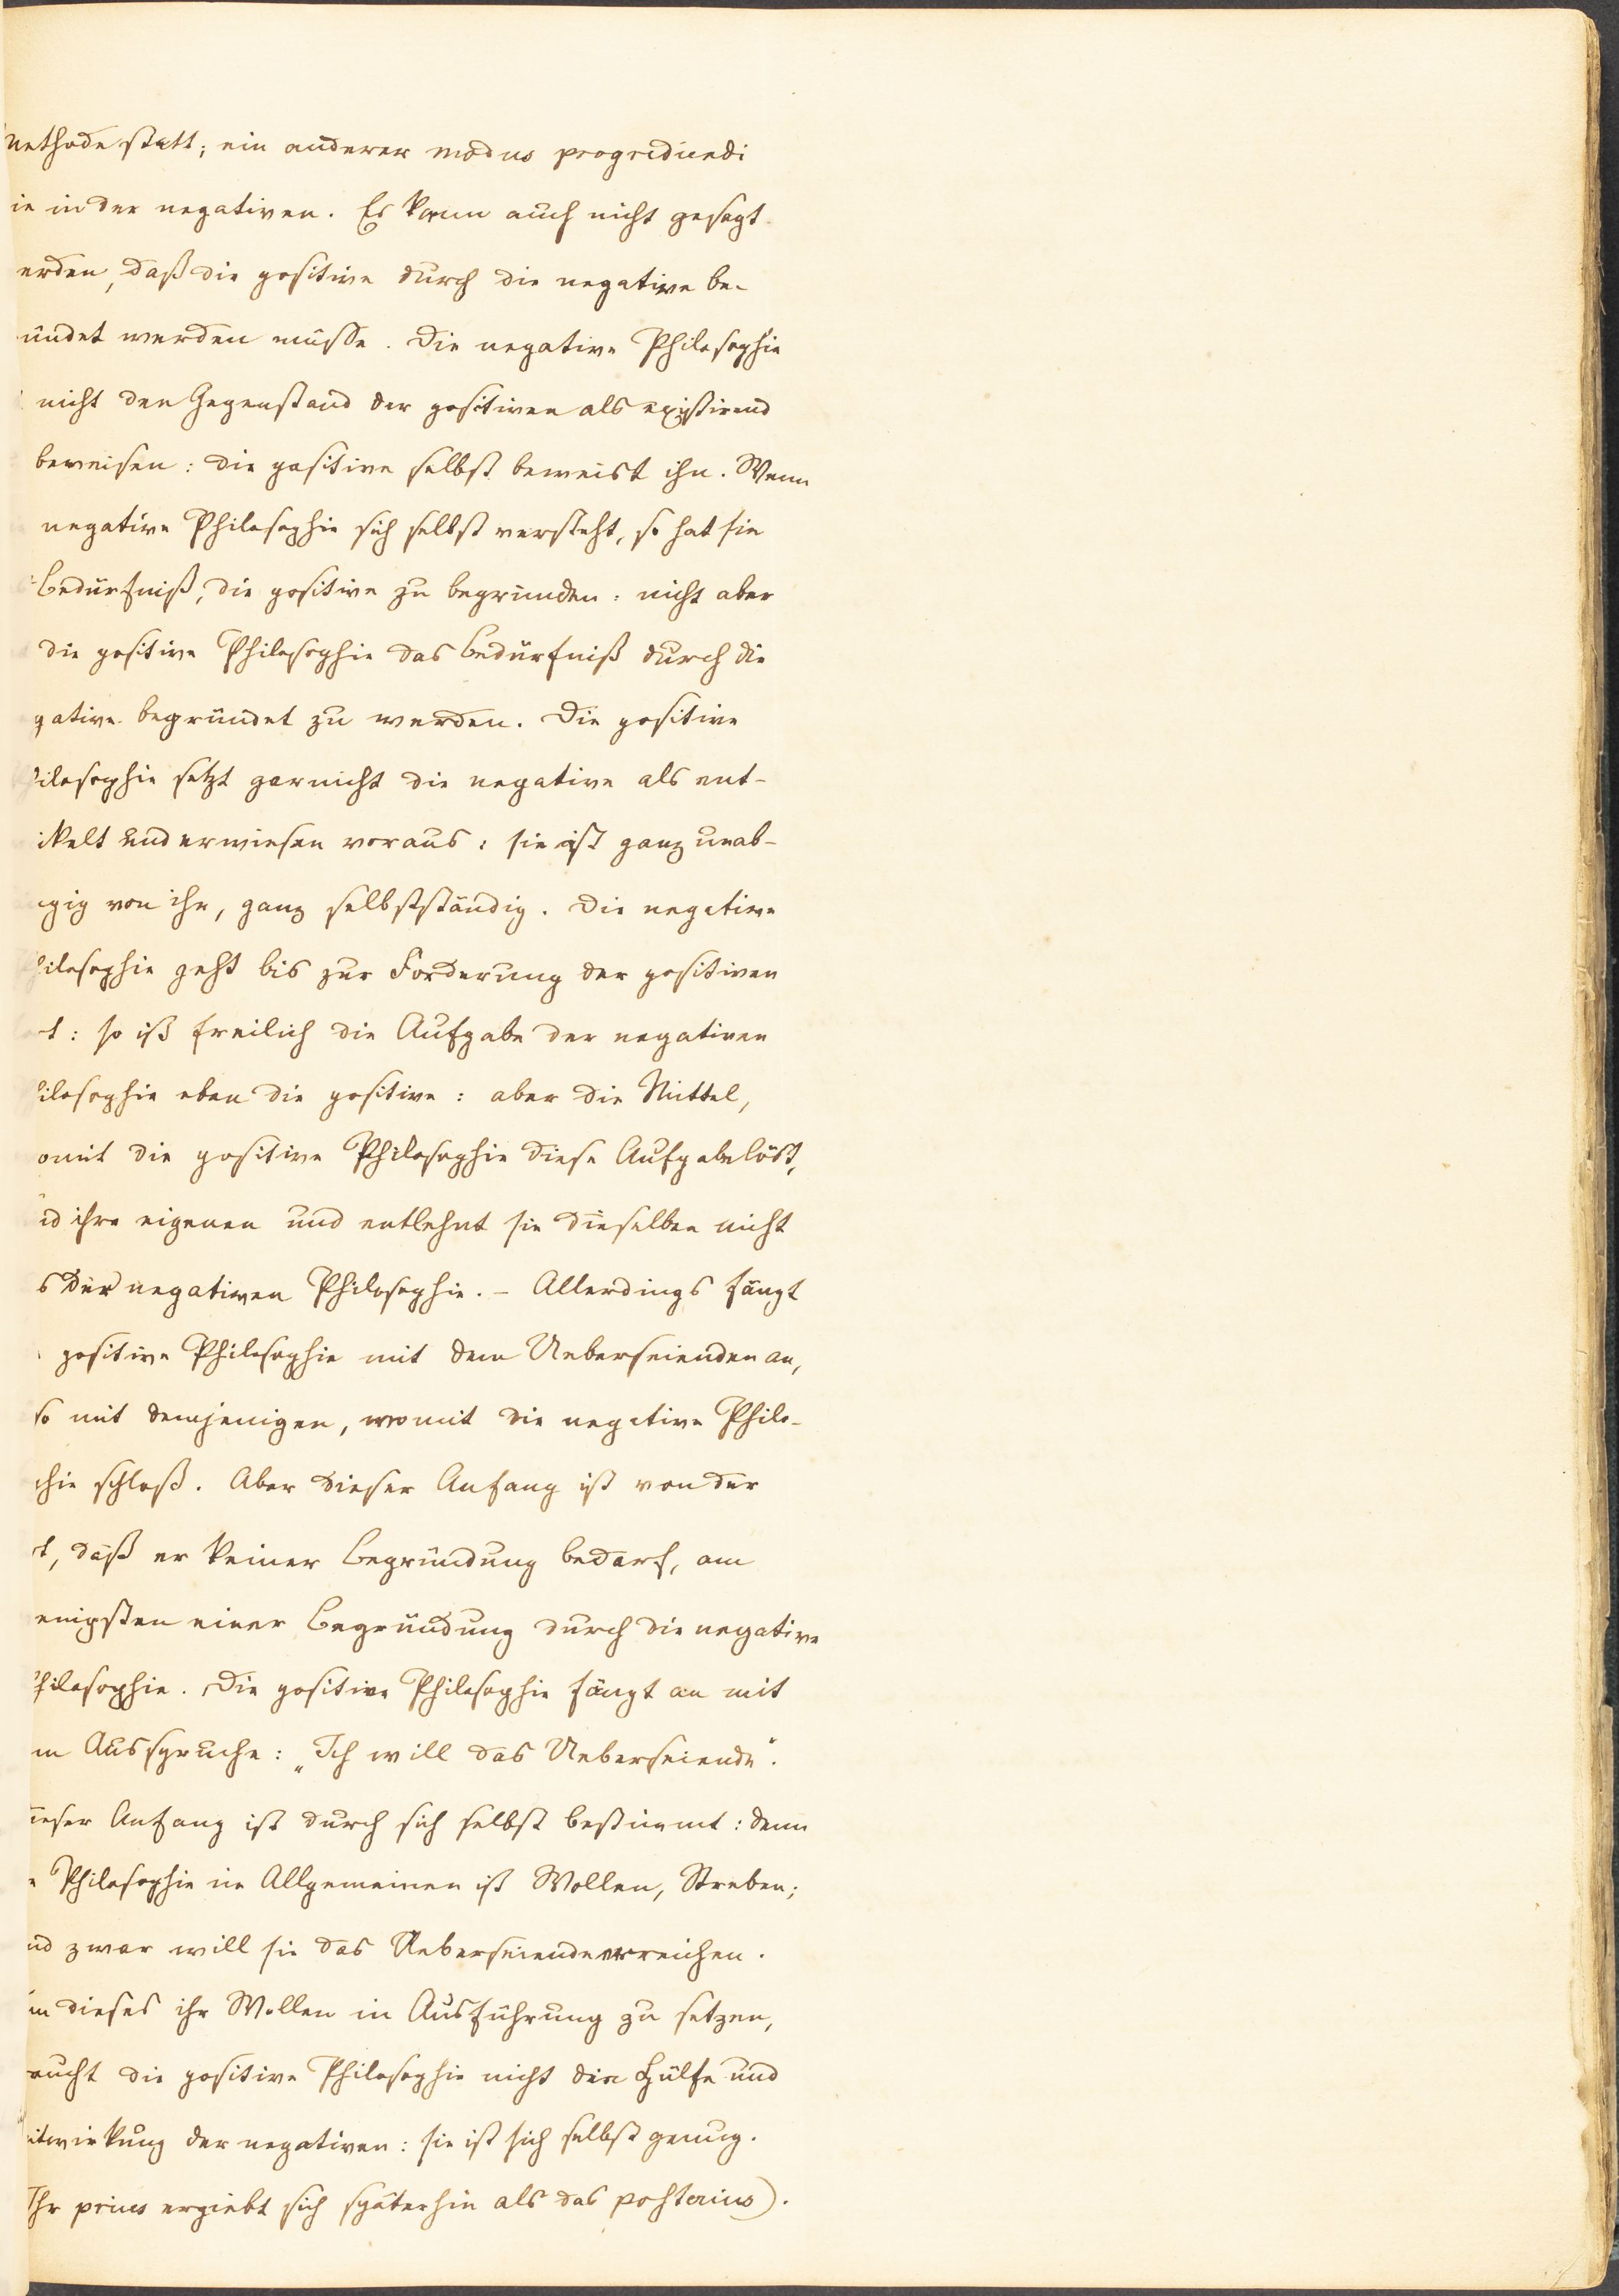 methode statt; ein anderer modus progrediendi
ie in der negativen. Es kann auch nicht gesagt
erden, daß die positive durch die negative be-
ündet werden müsse. Die negative Philosophie
nicht den Gegenstand der positiven als existirend
beweisen: die positive selbst beweist ihn. Wenn
negative Philosophie sich selbst versteht, so hat sie
Bedürfniß, die positive zu begründen: nicht aber
die positive Philosophie das Bedürfniß durch die
gative begründet zu werden. Die positive
hilosophie setzt gar nicht die negative als ent-
ikelt und erwiesen voraus: sie ist ganz unab-
ngig von ihr, ganz selbstständig. Die negative
hilosophie geht bis zur Forderung der positiven
t: so ist freilich die Aufgabe der negativen
hilosophie eben die positive: aber die Mittel,
omit die positive Philosophie diese Aufgabe löst,
nd ihre eigenen und entlehnt sie dieselben nicht
s der negativen Philosophie. – Allerdings fängt
positive Philosophie mit dem Ueberseienden an,
so mit demjenigen, womit die negative Philo-
phie schloß. Aber dieser Anfang ist von der
t, daß er keiner Begründung bedarf, am
enigsten einer Begründung durch die negative
hilosophie. Die positive Philosophie fängt an mit
m Ausspruche: „Ich will das Ueberseiende“.
ieser Anfang ist durch sich selbst bestimmt: denn
e Philosophie im Allgemeinen ist Wollen, Streben;
nd zwar will sie das Ueberseiende erreichen.
m dieses ihr Wollen in Ausführung zu setzen,
aucht die positive Philosophie nicht die Hülfe und
itwirkung der negativen: sie ist sich selbst genug.
Ihr prius ergiebt sich späterhin als das posterius).